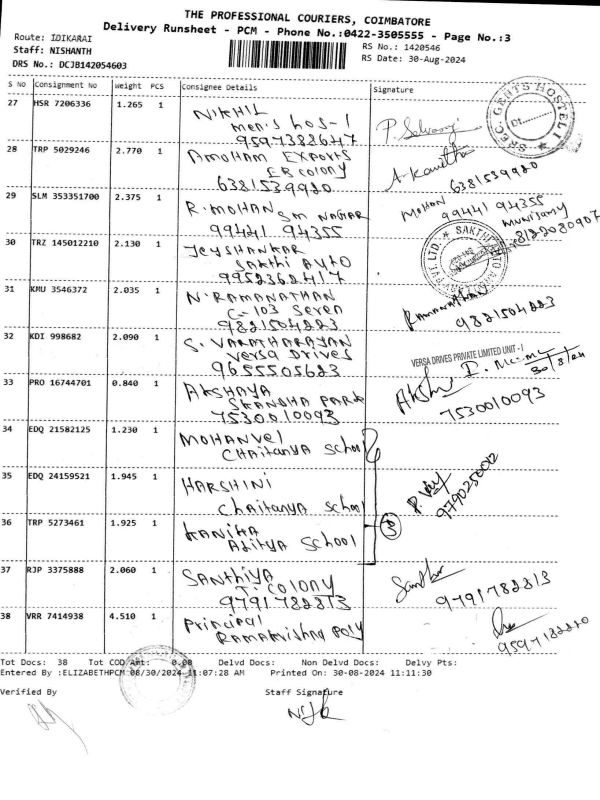 THE PROFESSIONAL COURIERS, COIMBATORE
Delivery Runsheet - PCM - Phone No.:0422-3505555 - Page No.:3
Route: IDIKARAI
RS No.: 1420546
Staff: NISHANTH
RS Date: 30-Aug-2024
DRS No.: DCJB142054603
S NO Consignment No Weight PCS Consignee Details Signature
27 HSR 7206336 1.265 1 NIKHIL
men's hos-1
9597388647
P. Selvaraj
SREC GENTS HOSTEL
28 TRP 5029246 2.770 1 AMOHAM EXPORTS
EB colony
6381539920
A. Kavitha
6381539920
29 SLM 353351700 2.375 1 R. MOHAN SM NAGAR
99441 94355
MOHAN
99441 94355
30 TRZ 145012210 2.130 1 JEYSHANKAR
Sakthi AUTO
9952362417
Munisamy
8122080907
31 KMU 3546372 2.035 1 N. RAMANATHAN
C-103 Seven
9821504223
RAMANATHAN
9821504223
32 KDI 998682 2.090 1 S. VARATHARAYAN
Versa Drives
9655505623
VERSA DRIVES PRIVATE LIMITED UNIT - I
30/8/24
33 PRO 16744701 0.840 1 AKSHAYA
SKANDHA PARK
7530010093
Aksh
7530010093
34 EDQ 21582125 1.230 1 MOHANVEL
CHAITANYA School
35 EDQ 24159521 1.945 1 HARSHINI
Chaitanya School
P. Vijay
9790250012
36 TRP 5273461 1.925 1 KANIKA
Aditya School
3
37 RJP 3375888 2.060 1 SANTHIYA
T. COLONY
9791782813
9791782813
38 VRR 7414938 4.510 1 Principal
Ramakrishna Poly
Tot Docs: 38 Tot COD Amt: 0.00 Delvd Docs: Non Delvd Docs: Delvy Pts:
Entered By :ELIZABETHPCM 08/30/2024 11:07:28 AM Printed On: 30-08-2024 11:11:30
Verified By Staff Signature